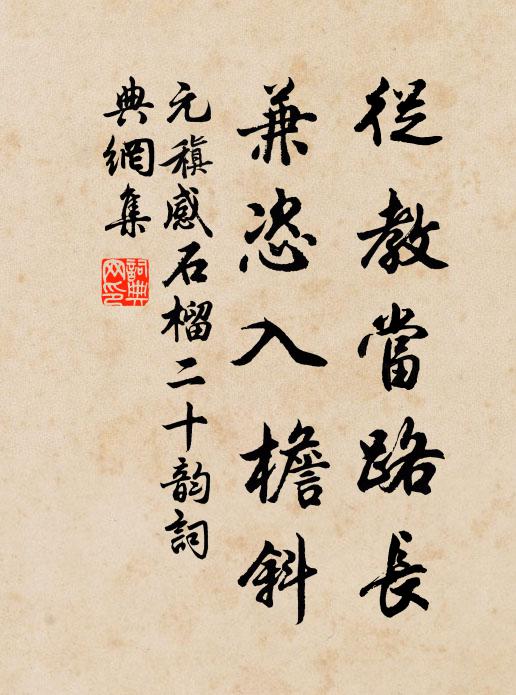 從教當路長
兼恣入檐斜
元稹感石榴二十韵詞
典網集
詞典
网印